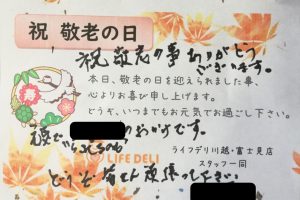 祝 敬老の日
祝 敬老の事ありがとう
ございます。
本日、敬老の日を迎えられました事、
心よりお喜び申し上げます。
どうぞ、いつまでもお元気でお過ごし下さい。
のおかげです。
ライフデリ川越・富士見店
スタッフ一同
LIFE DELI
どうぞ皆さん頑張って下さい